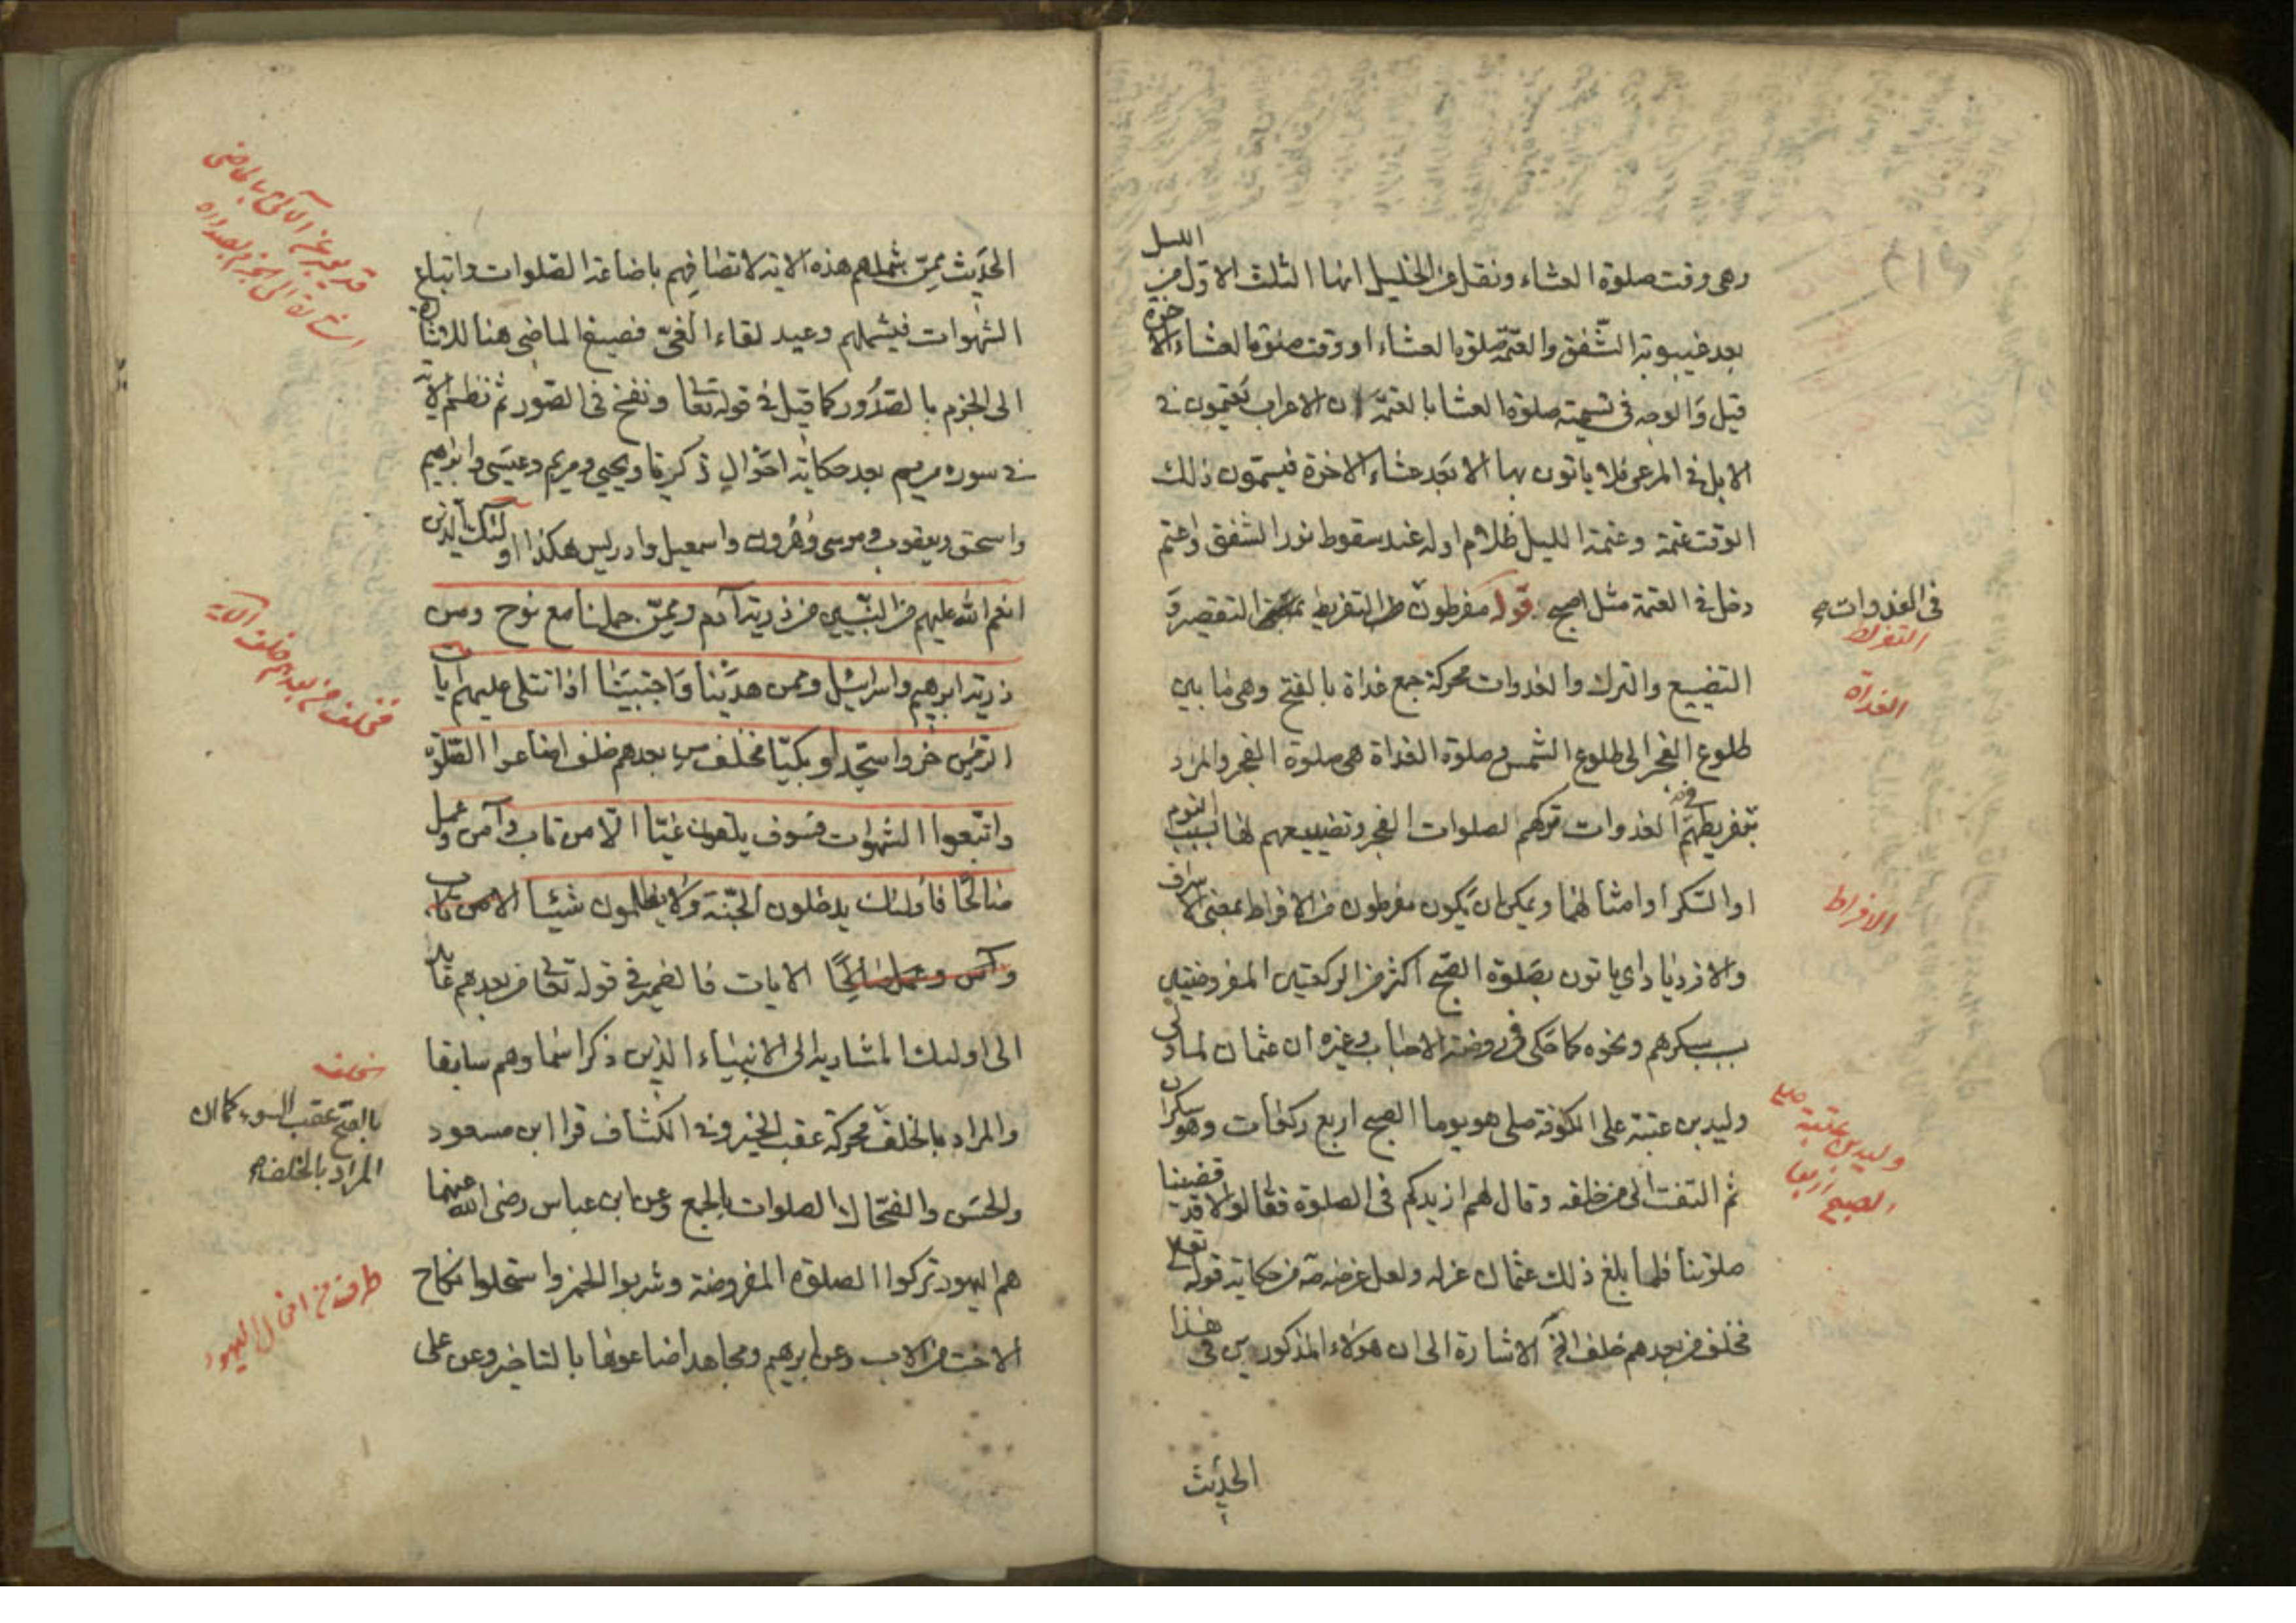 الليل
وهى وقت صلوة العشاء ونقل عن الخليل انها الثلث الاول من
بعد غيبوبة الشفق والعتمة صلوة العشاء او وقت صلوة العشاء الاخرة
قيل والوجه فى تسمية صلوة العشا بالعتمة ان الاعراب يعتمون فى
الابل فى المرعى فلا ياتون بها الا بعد عشاء الاخرة فيسمون ذلك
الوقت عتمة وعتمة الليل ظلام اوله عند سقوط نور الشفق واعتم
دخل فى العتمة مثل اصبح قوله مفرطون من التفريط بمعنى التقصير و
فى الغدوات صح
التفريط
التضييع والترك والغدوات محركة جمع غداة بالفتح وهى ما بين
الغداة
طلوع الفجر الى طلوع الشمس وصلوة الغداة هى صلوة الفجر والمراد
بتفريطهم فى الغدوات تركهم لصلوات الفجر وتضييعهم لها بسبب النوم
او السكر او امثالهما ويمكن ان يكون مفرطون من الافراط بمعنى الاسراف
الافراط
والازدياد اى ياتون بصلوة الصبح اكثر من الركعتين المفروضتين
بسبب سكرهم ونحوه كما حكى فى روضة الاحباب وغيره ان عثمان لما ولى
وليد بن عتبة على الكوفة صلى هو يوما الصبح اربع ركعات وهو سكران
صلى وليد بن عتبة
الصبح اربعا
ثم التفت الى من خلفه وقال لهم ازيدكم فى الصلوة فقالوا لا قد قضينا
صلوتنا فلما بلغ ذلك عثمان عزله ولعل غرضه من حكاية قوله تعالى
فخلف من بعدهم خلف الخ الاشارة الى ان هؤلاء المذكورين فى هذا
الحديث
الحديث ممن شملهم هذه الاية لاتصافهم باضاعة الصلوات واتباع
قد يعبر عن الآتى بالماضى
الشهوات فيشملهم وعيد لقاء الغى فصيغ الماضى هنا للاشارة
الى الجزم بالصدور كما قيل فى قوله تعا ونفخ فى الصور ثم نظم الاية
فى سورة مريم بعد حكاية احوال زكريا ويحيى ومريم وعيسى وابراهيم
واسحق ويعقوب وموسى وهرون واسمعيل وادريس هكذا اولئك الذين
انعم الله عليهم من النبيين من ذرية آدم وممن حملنا مع نوح ومن
فخلف من بعدهم خلف الآية
ذرية ابرهيم واسرائيل وممن هدينا واجتبينا اذا تتلى عليهم ايات
الرحمن خروا سجدا وبكيا فخلف من بعدهم خلف اضاعوا الصلوة
واتبعوا الشهوات فسوف يلقون غيا الا من تاب وآمن وعمل
صالحا فاولئك يدخلون الجنة ولا يظلمون شيئا الا من تاب
وآمن وعمل صالحا الايات فالضمير فى قوله تعا من بعدهم عائد
الى اولئك المشار به الى الانبياء الذين ذكر اسماؤهم سابقا
خلف
بالفتح عقب السوء كما ان
المراد بالخلف صح
والمراد بالخلف محركة عقب الخير وفى الكشاف قرا ابن مسعود
والحسن والضحاك الصلوات بالجمع وعن ابن عباس رضى الله عنهما
هم اليهود تركوا الصلوة المفروضة وشربوا الخمر واستحلوا نكاح
طرف من افعال اليهود
الاخت من الاب وعن ابرهيم ومجاهد اضاعوها بالتاخير وعن على